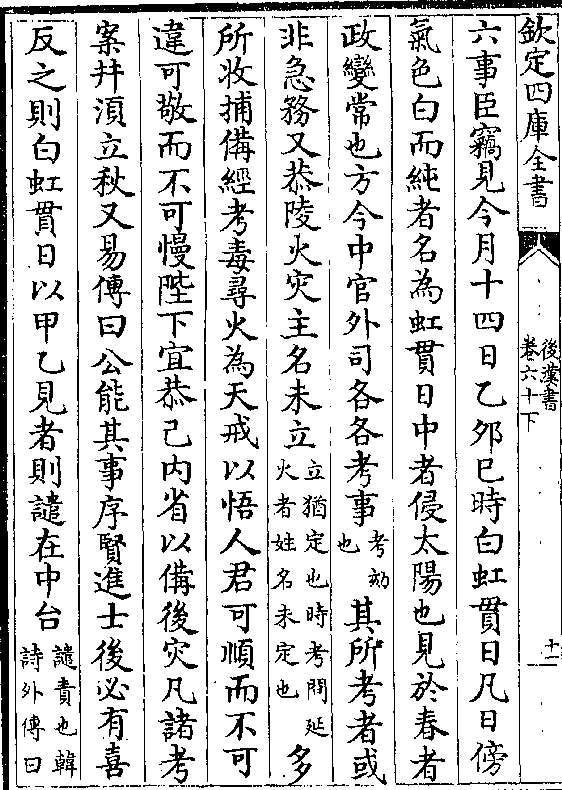 欽定四庫全書
後漢書
卷六十下
十一
六事臣竊見今月十四日乙夘巳時白虹貫日凡日傍
氣色白而純者名為虹貫日中者侵太陽也見於春者
政變常也方今中官外司各各考事考劾也其所考者或
非急務又恭陵火灾主名未立立猶定也時考問延火者姓名未定也多
所收捕備經考毒尋火為天戒以悟人君可順而不可
違可敬而不可慢陛下宜恭己内省以備後灾凡諸考
案并湏立秋又易傳曰公能其事序賢進士後必有喜
反之則白虹貫日以甲乙見者則譴在中台譴責也韓詩外傳曰